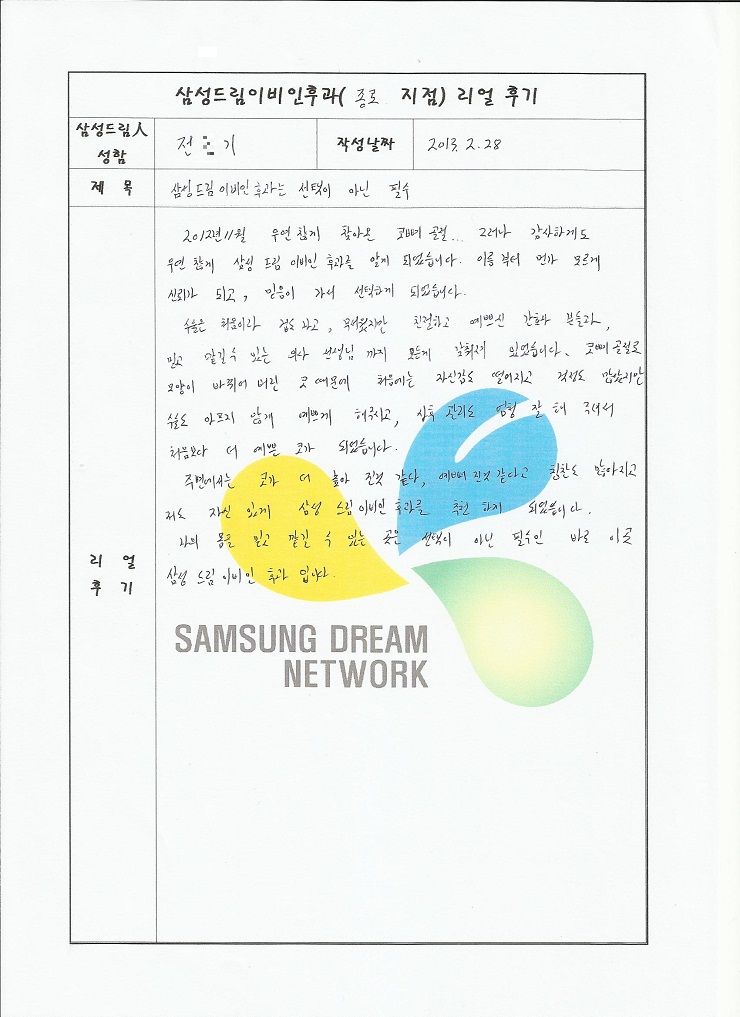 삼성드림이비인후과( 종로 지점) 리얼 후기
삼성드림人
성함
전 기
작성날짜
2013. 2. 28
제 목
삼성드림이비인후과는 선택이 아닌 필수
2012년 11월 우연찮게 찾아온 코뼈 골절... 그러나 감사하게도
우연찮게 삼성 드림 이비인후과를 알게 되었습니다. 이름부터 먼가 모르게
신뢰가 되고, 믿음이 가서 선택하게 되었습니다.
수술은 처음이라 겁도 나고, 무서웠지만 친절하고 예쁘신 간호사 분들과,
믿고 맡길 수 있는 의사 선생님 까지 모든게 갖춰져 있었습니다. 코뼈 골절로
모양이 바뀌어 버린 코 때문에 처음에는 자신감도 떨어지고 걱정도 많았지만
수술도 아프지 않게 예쁘게 해주시고, 사후 관리도 엄청 잘 해 주셔서
처음보다 더 예쁜 코가 되었습니다.
주변에서는 코가 더 높아 진것 같다, 예뻐진것 같다고 칭찬도 많아지고
저도 자신 있게 삼성 드림이비인후과를 추천 하게 되었습니다.
나의 몸을 믿고 맡길 수 있는 곳은 선택이 아닌 필수인 바로 이곳
삼성 드림이비인 후과 입니다.
리 얼
후 기
SAMSUNG DREAM
NETWORK